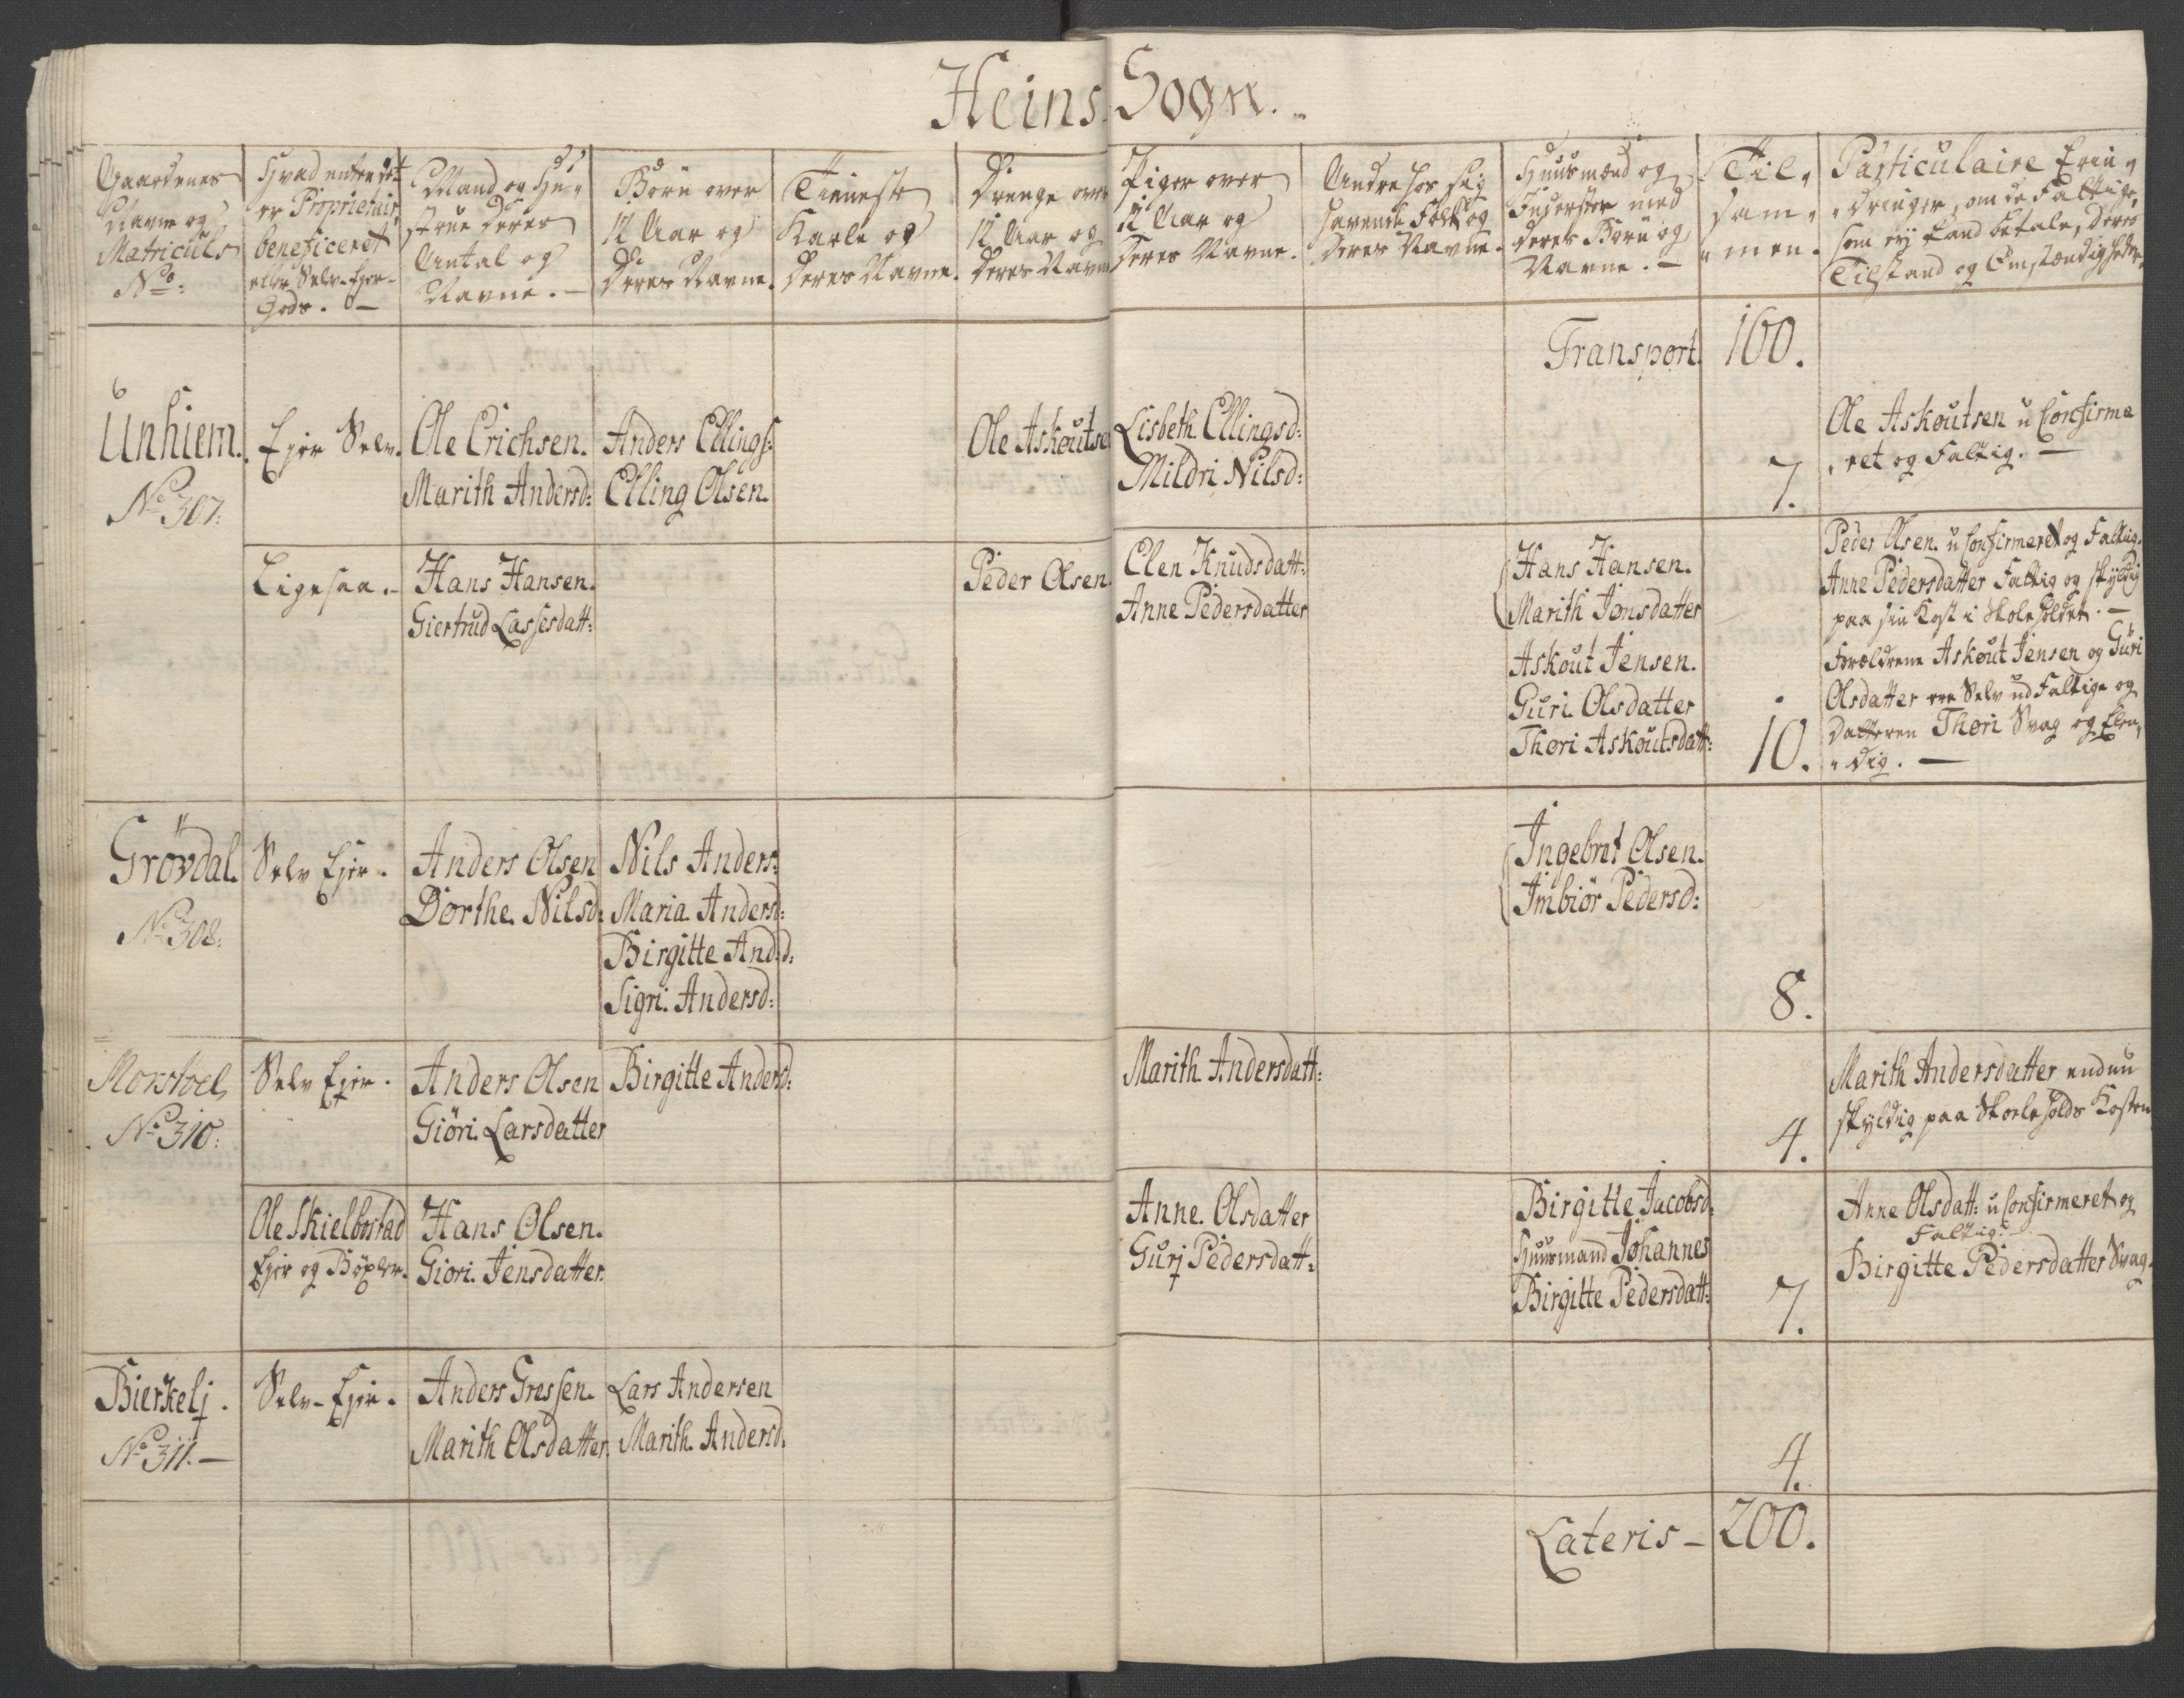 Heins Sogn.
Gaardenes
Navne og
Matriculs
No:
Hvad enten det
er Proprietair,
beneficeret
eller Selv-Ejer-
Gods. —
Mand og Hu-
strue deres
Antal og
Navne. —
Börn over
12 Aar og
Deres Navne.
Tieneste
Karle og
Deres Navne.
Drenge over
12 Aar og
Deres Navn
Piger over
12 Aar og
Deres Navne.
Andre hos sig
havende Folk og
Deres Navne.
Huusmænd og
Inderster med
deres Börn og
Navne. —
Til„
sam„
„men.
Particulaire Erin„
„dringer, om de Fattige,
som ej kand betale, deres
Tilstand og Omstændigheder.
Transport. 100.
Unhiem.
No 307.
Ejer Selv.
Ole Erichsen.
Marith Andersd:
Anders Ellings:
Elling Olsen.
Ole Askoutse
Lisbeth Ellingsd:
Mildri Nilsd:
7.
Ole Askoutsen u Confirme
„ret og Fattig. —
Ligesaa. -
Hans Hansen.
Giertrud Lassesdatt:
Peder Olsen.
Elen Knudsdatt:
Anne Pedersdatter
Hans Hansen.
Marith Jonsdatter
Askout Jensen.
Guri Olsdatter
Thori Askoutsdatt:
10.
Peder Olsen u Confirmeret og Fattig.
Anne Pedersdatter Fattig og skyldig
paa sin Kost i Skoleholdet. —
Forældrene Askout Jensen og Guri
Olsdatter ere Selv ud Fattige og
Datteren Thori Svag og Elen„
„dig. —
Grövdal.
No 308.
Selv Ejer.
Anders Olsen
Dorthe Nilsd:
Nils Anders:
Maria Andersd:
Birgitte And:d:
Sigri Andersd:
Ingebrat Olsen.
Imbiör Pedersd:
8.
Morstoel
No 310.
Selv Ejer.
Anders Olsen
Giöri Larsdatter
Birgitte Andersd:
Marith Andersdatt:
4.
Marith Andersdatter endnu
skyldig paa Skoleholds Kosten
Ole Skielbostad
Ejer og Böxler.
Hans Olsen.
Giöri Jensdatter.
Anne Olsdatter
Gurj Pedersdatt:
Birgitte Jacobsd:
Huusmand Johannes
Birgitte Pedersdatt:
7.
Anne Olsdatt: u Confirmeret og
Fattig.
Birgitte Pedersdatter Svag.
Bierkelj.
No 311. —
Selv-Ejer.
Anders Gressen.
Marith Olsdatter.
Lars Andersen
Marith Andersd.
4.
Lateris - 200.